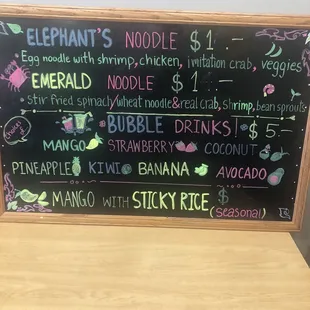 ELEPHANT'S NOODLE $1.-
• Egg noodle with shrimp, chicken, imitation crab, veggies
EMERALD NOODLE $1.-
• Stir fried spinach/wheat noodle & real crab, shrimp, bean sprouts
BUBBLE DRINKS! $5.-
MANGO STRAWBERRY COCONUT
PINEAPPLE KIWI BANANA AVOCADO
MANGO WITH STICKY RICE $
(seasonal)